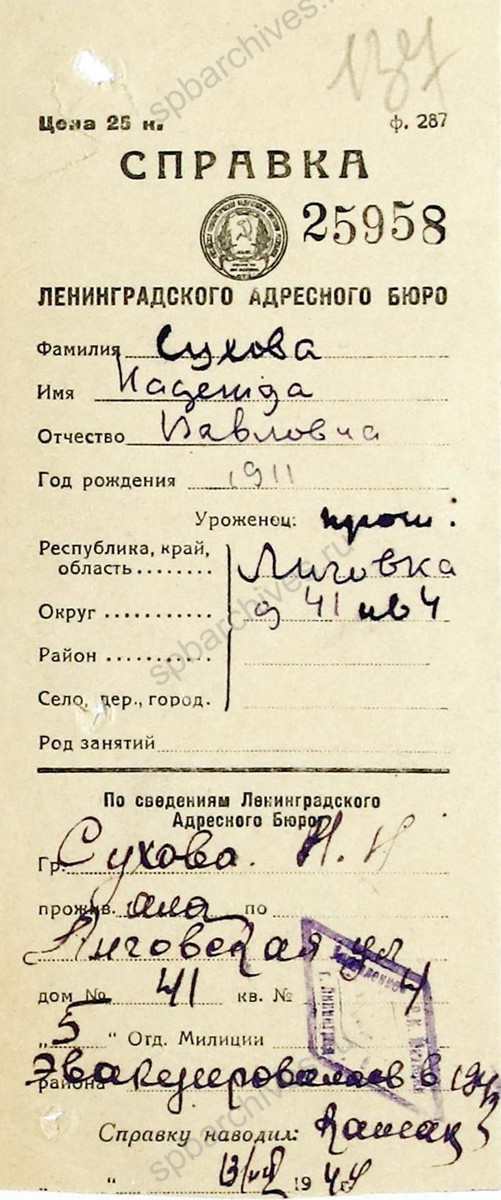 137
Цена 25 к. ф. 287
СПРАВКА
25958
ЛЕНИНГРАДСКОГО АДРЕСНОГО БЮРО
Фамилия Сухова
Имя Надежда
Отчество Павловна
Год рождения 1911
Уроженец: прож:
Республика, край,
область........ Лиговка
Округ........... д 41 кв 4
Район...........
Село, дер., город.
Род занятий
По сведениям Ленинградского
Адресного Бюро
Гр. Сухова. Н. П
прожив. ала по
Лиговская ул
дом № 41 кв. № 4
„5“ Отд. Милиции
района Эвакуировалась в 194
Справку наводил:
„ “ 13/VIII 1944
spbarchives.ru
spbarchives.ru
spbarchives.ru
spbarchives.ru